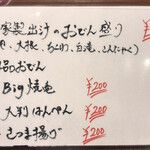 家製出汁のおでん盛り
、大根、ちくわ、白滝、こんにゃく)
品おでん
Big焼売 ¥200
大判はんぺん ¥200
さつま揚げ ¥200